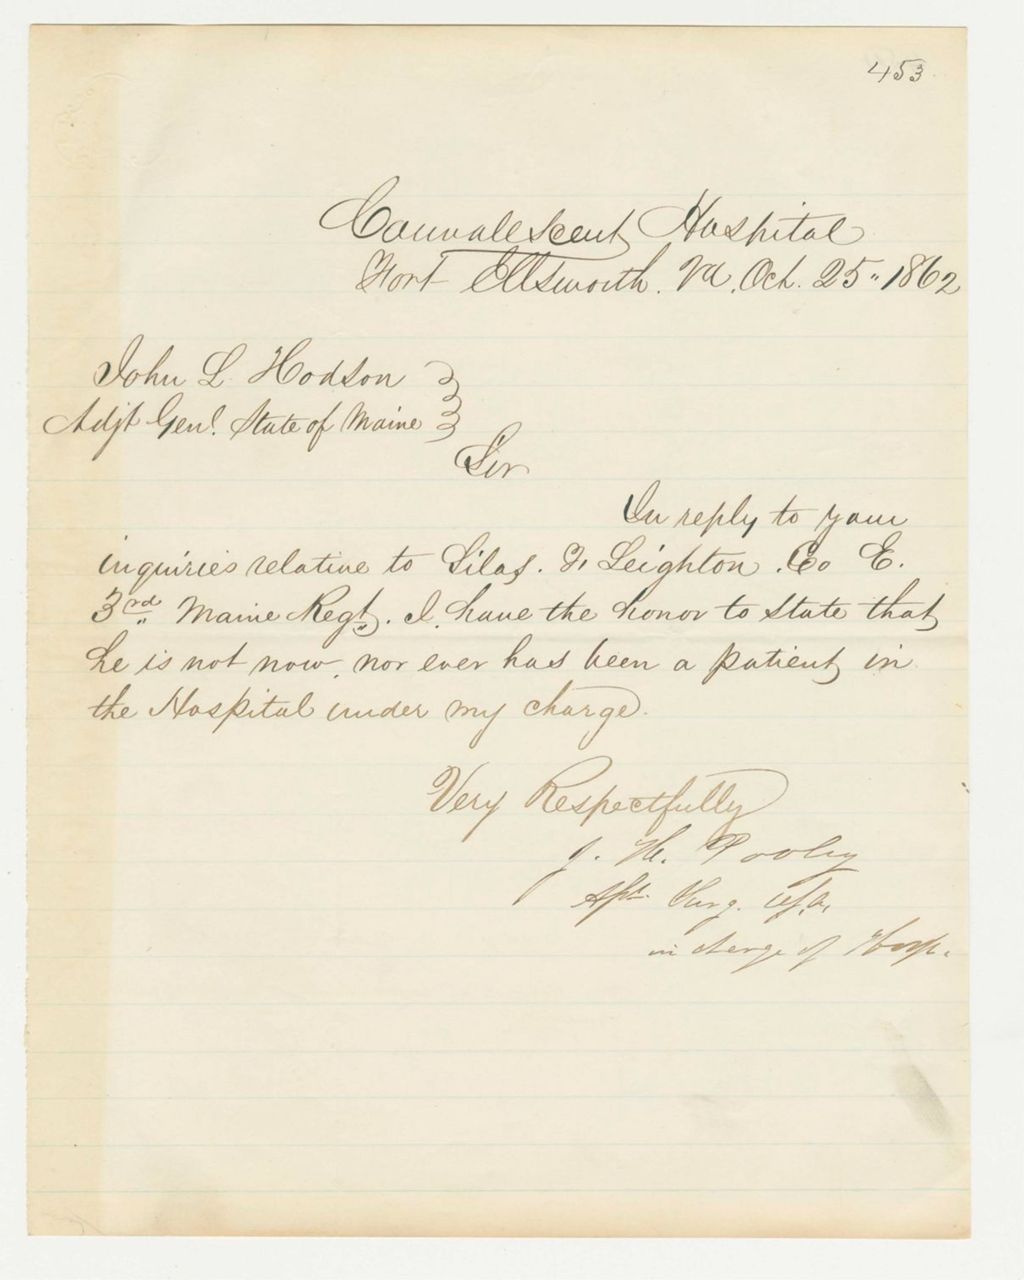 453
Convalescent Hospital
Fort Ellsworth. Va. Oct. 25" 1862
John L Hodson
Adjt Genl. State of Maine
Sir
In reply to your
inquiries relative to Silas. F. Leighton. Co E.
3rd Maine Regt. I have the honor to state that
he is not now, nor ever has been a patient in
the Hospital under my charge.
Very Respectfully
J. H. Pooley
Surg. U.S.A.
in charge of Hosp.